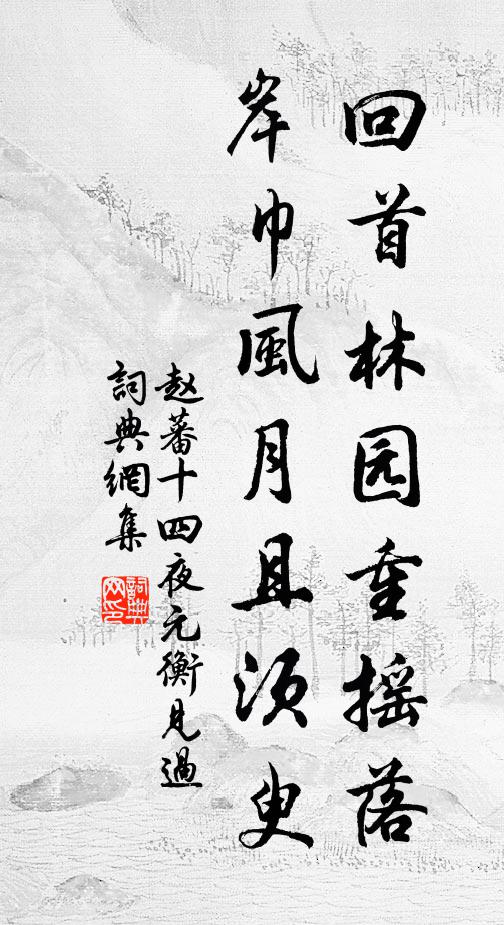 回首林园重摇落
岸巾風月且须臾
赵蕃十四夜元衡見過
詞典網集